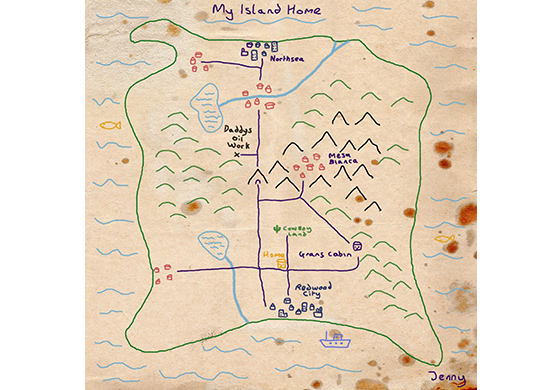 My Island Home
Northsea
Daddys
Oil
Work
x
Mesa
Blanca
CowBoy
Land
Home
Grans Cabin
Redwood
City
Jenny